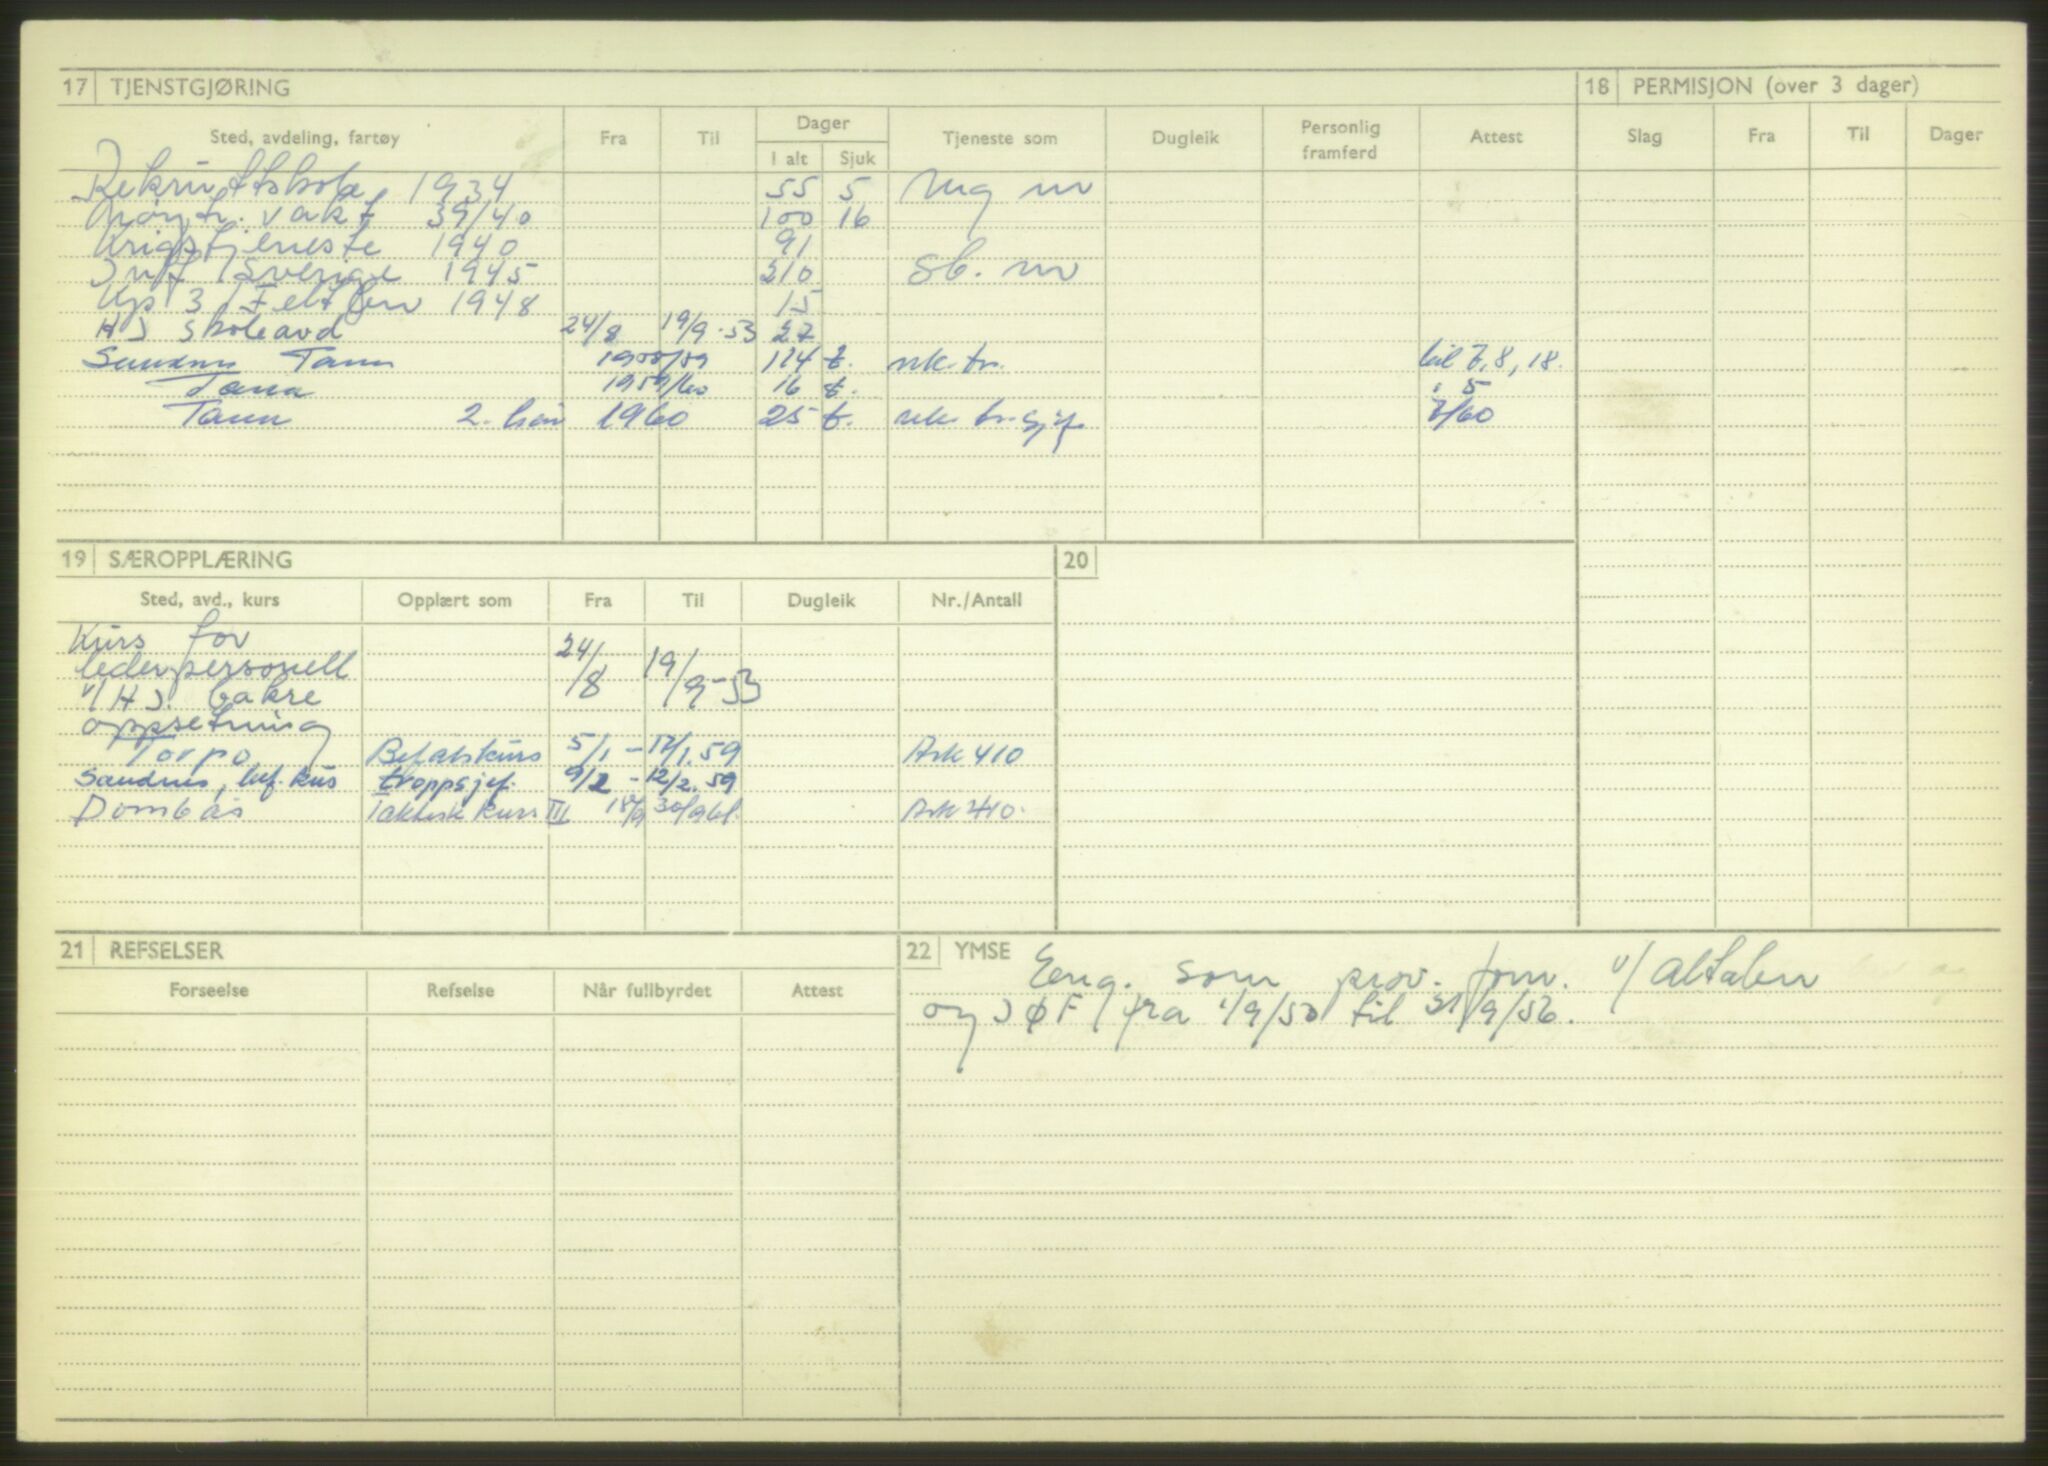 17 TJENSTGJØRING
Sted, avdeling, fartøy Fra Til Dager I alt Sjuk Tjeneste som Dugleik Personlig framferd Attest
Rekruttskole 1934 55 5 Mg m
Nøytr. vakt 39/40 100 16
Krigstjeneste 1940 91
Inf i Sverige 1945 210 Sb. m
Kp 3 1948 15
HJ Skoleavd 24/8 19/9-53 27
Sandnes Tana 114 t. bil 7, 8, 18.
Tana 1959/60 16 t. " 5
Tana 2. 1960 25 t. 7/60
18 PERMISJON (over 3 dager)
Slag Fra Til Dager
19 SÆROPPLÆRING
Sted, avd., kurs Opplært som Fra Til Dugleik Nr./Antall
Kurs for
lederpersonell 24/8 19/9-53
v/ HJ. bakre
oppsetning
Torpo Befalskurs 5/1 - 17/1.59 Ark 410
Sandnes, bef. kurs troppsjef. 9/2 - 12/2.59
Dombås Taktisk kurs III 18/9 30/9 61. Ark 410.
20
21 REFSELSER
Forseelse Refselse Når fullbyrdet Attest
22 YMSE
Eng. som prov. forv. v/ Altabn
og JØF fra 1/9/50 til 31/9/56.